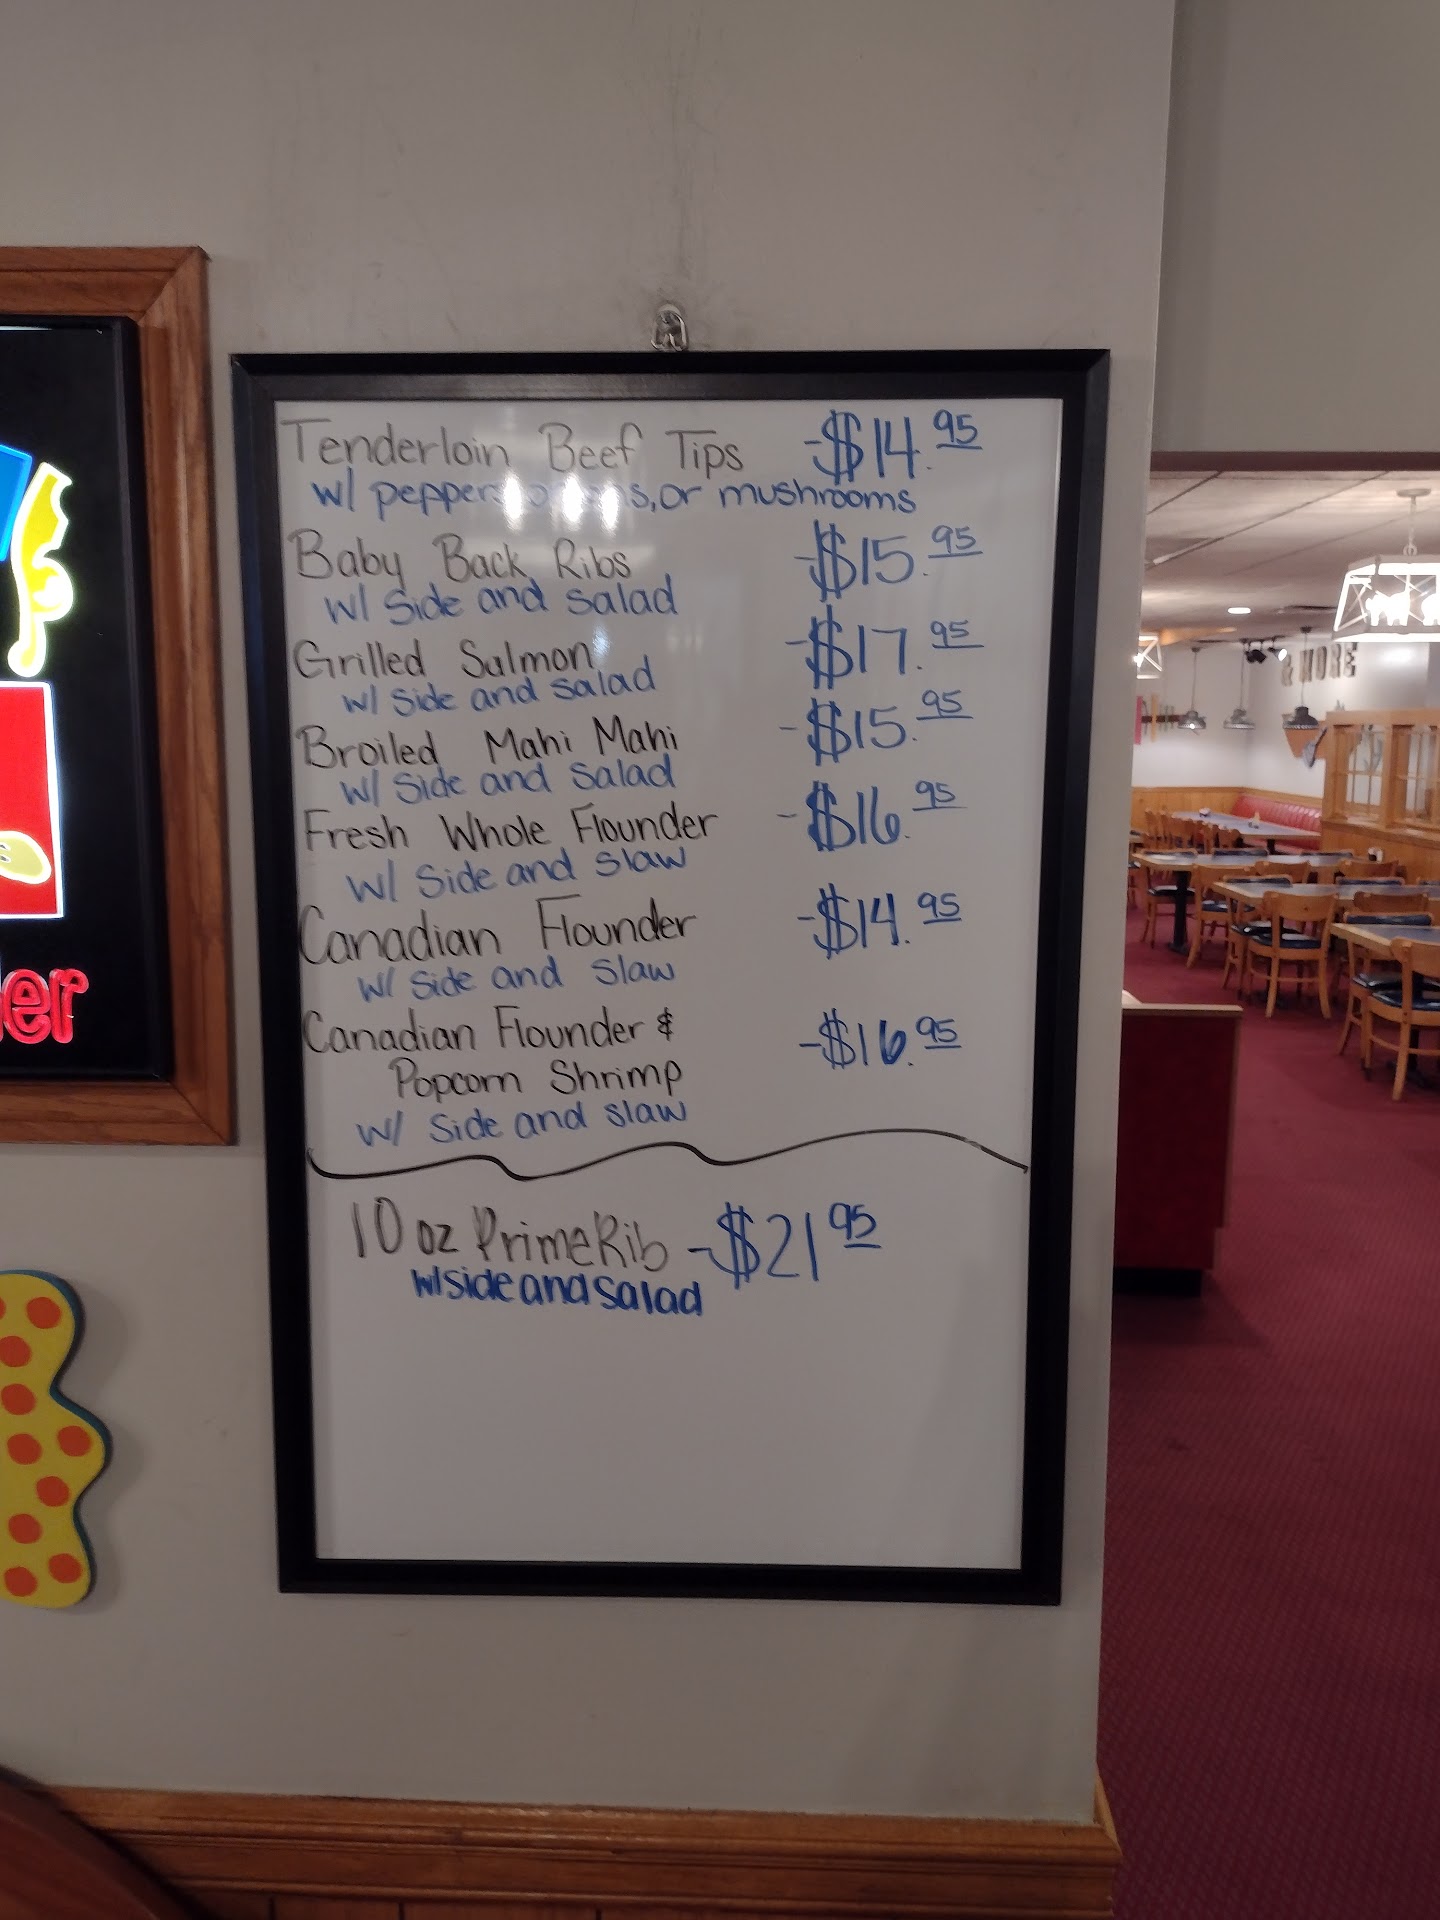 Tenderloin Beef Tips -$14.95
w/ peppers, onions, or mushrooms
Baby Back Ribs -$15.95
w/ side and salad
Grilled Salmon -$17.95
w/ side and salad
Broiled Mahi Mahi -$15.95
w/ side and salad
Fresh Whole Flounder -$16.95
w/ side and slaw
Canadian Flounder -$14.95
w/ side and slaw
Canadian Flounder & -$16.95
Popcorn Shrimp
w/ side and slaw
10 oz Prime Rib -$21 95
w/ side and salad
er
& MORE